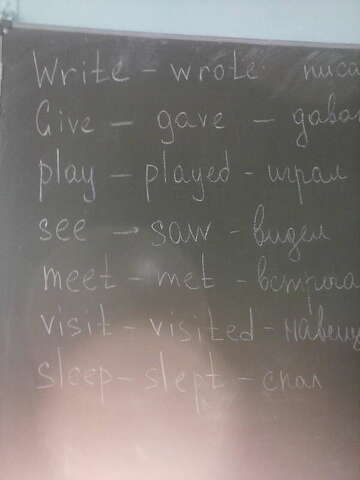 Write – wrote писа
Give – gave – дава
play – played – играл
see → saw – видел
meet – met – встреча
visit – visited – навещ
sleep – slept – спал